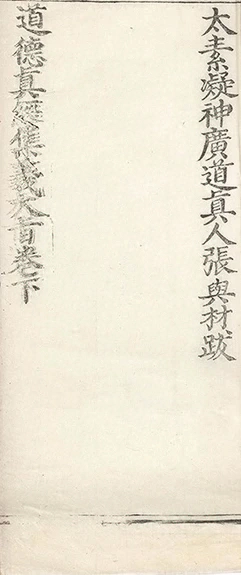 太素凝神廣道真人張與材跋
道德真經集義大旨卷下